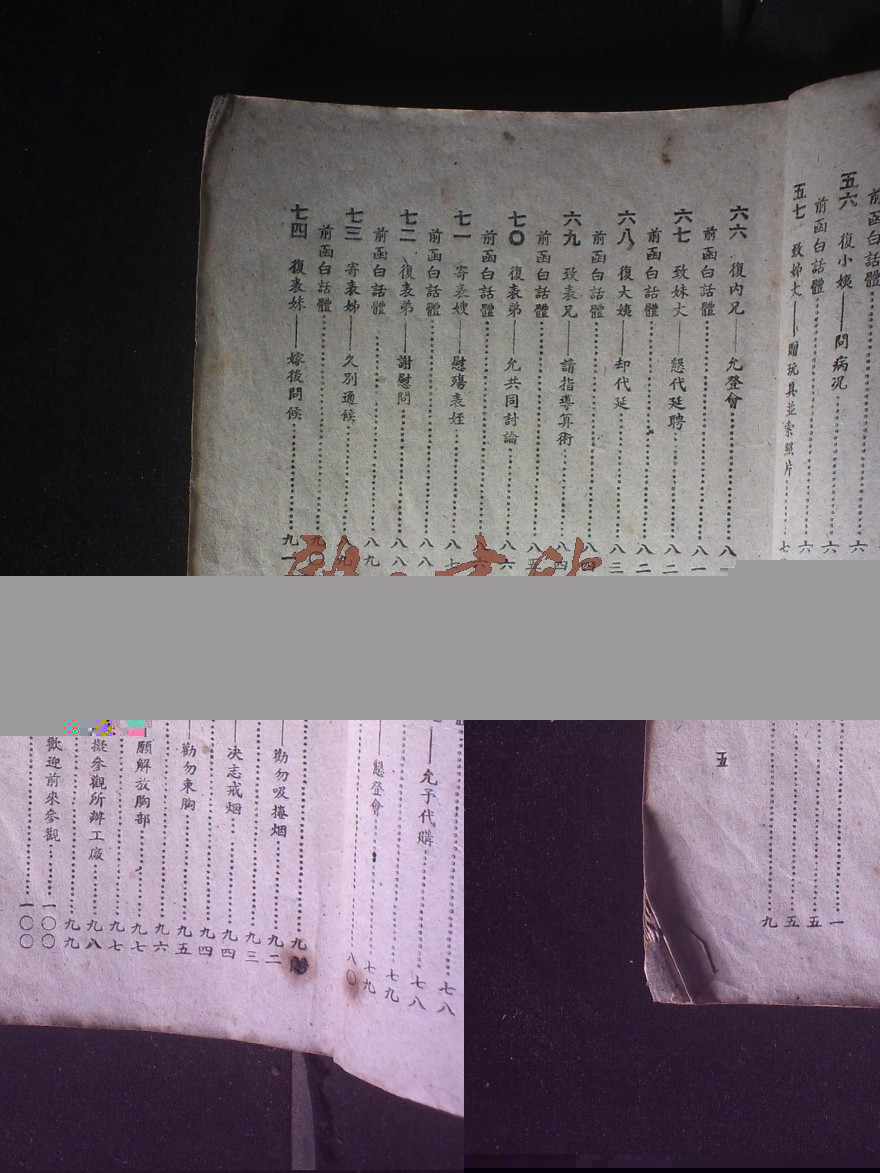 前函白話體
五六 復小姨——問病況
前函白話體
五七 致姊丈——贈玩具並索照片
六六 復內兄——允登會
前函白話體
六七 致妹丈——懇代延聘
前函白話體
六八 復大姨——却代延
前函白話體
六九 致表兄——請指導算術
前函白話體
七〇 復表弟——允共同討論
前函白話體
七一 寄表嫂——慰殤表姪
前函白話體
七二 復表弟——謝慰問
前函白話體
七三 寄表姊——久別通候
前函白話體
七四 復表妹——嫁後問候
七八
允予代購 七八
七九
懇登會 七九
八〇
九
勸勿吸捲烟 九二
九三
决志戒烟 九四
九四
勸勿束胸 九五
九六
願解放胸部 九七
九七
擬參觀所辦工廠 九八
九九
歡迎前來參觀 一〇〇
一〇〇
一
五
五
九
五